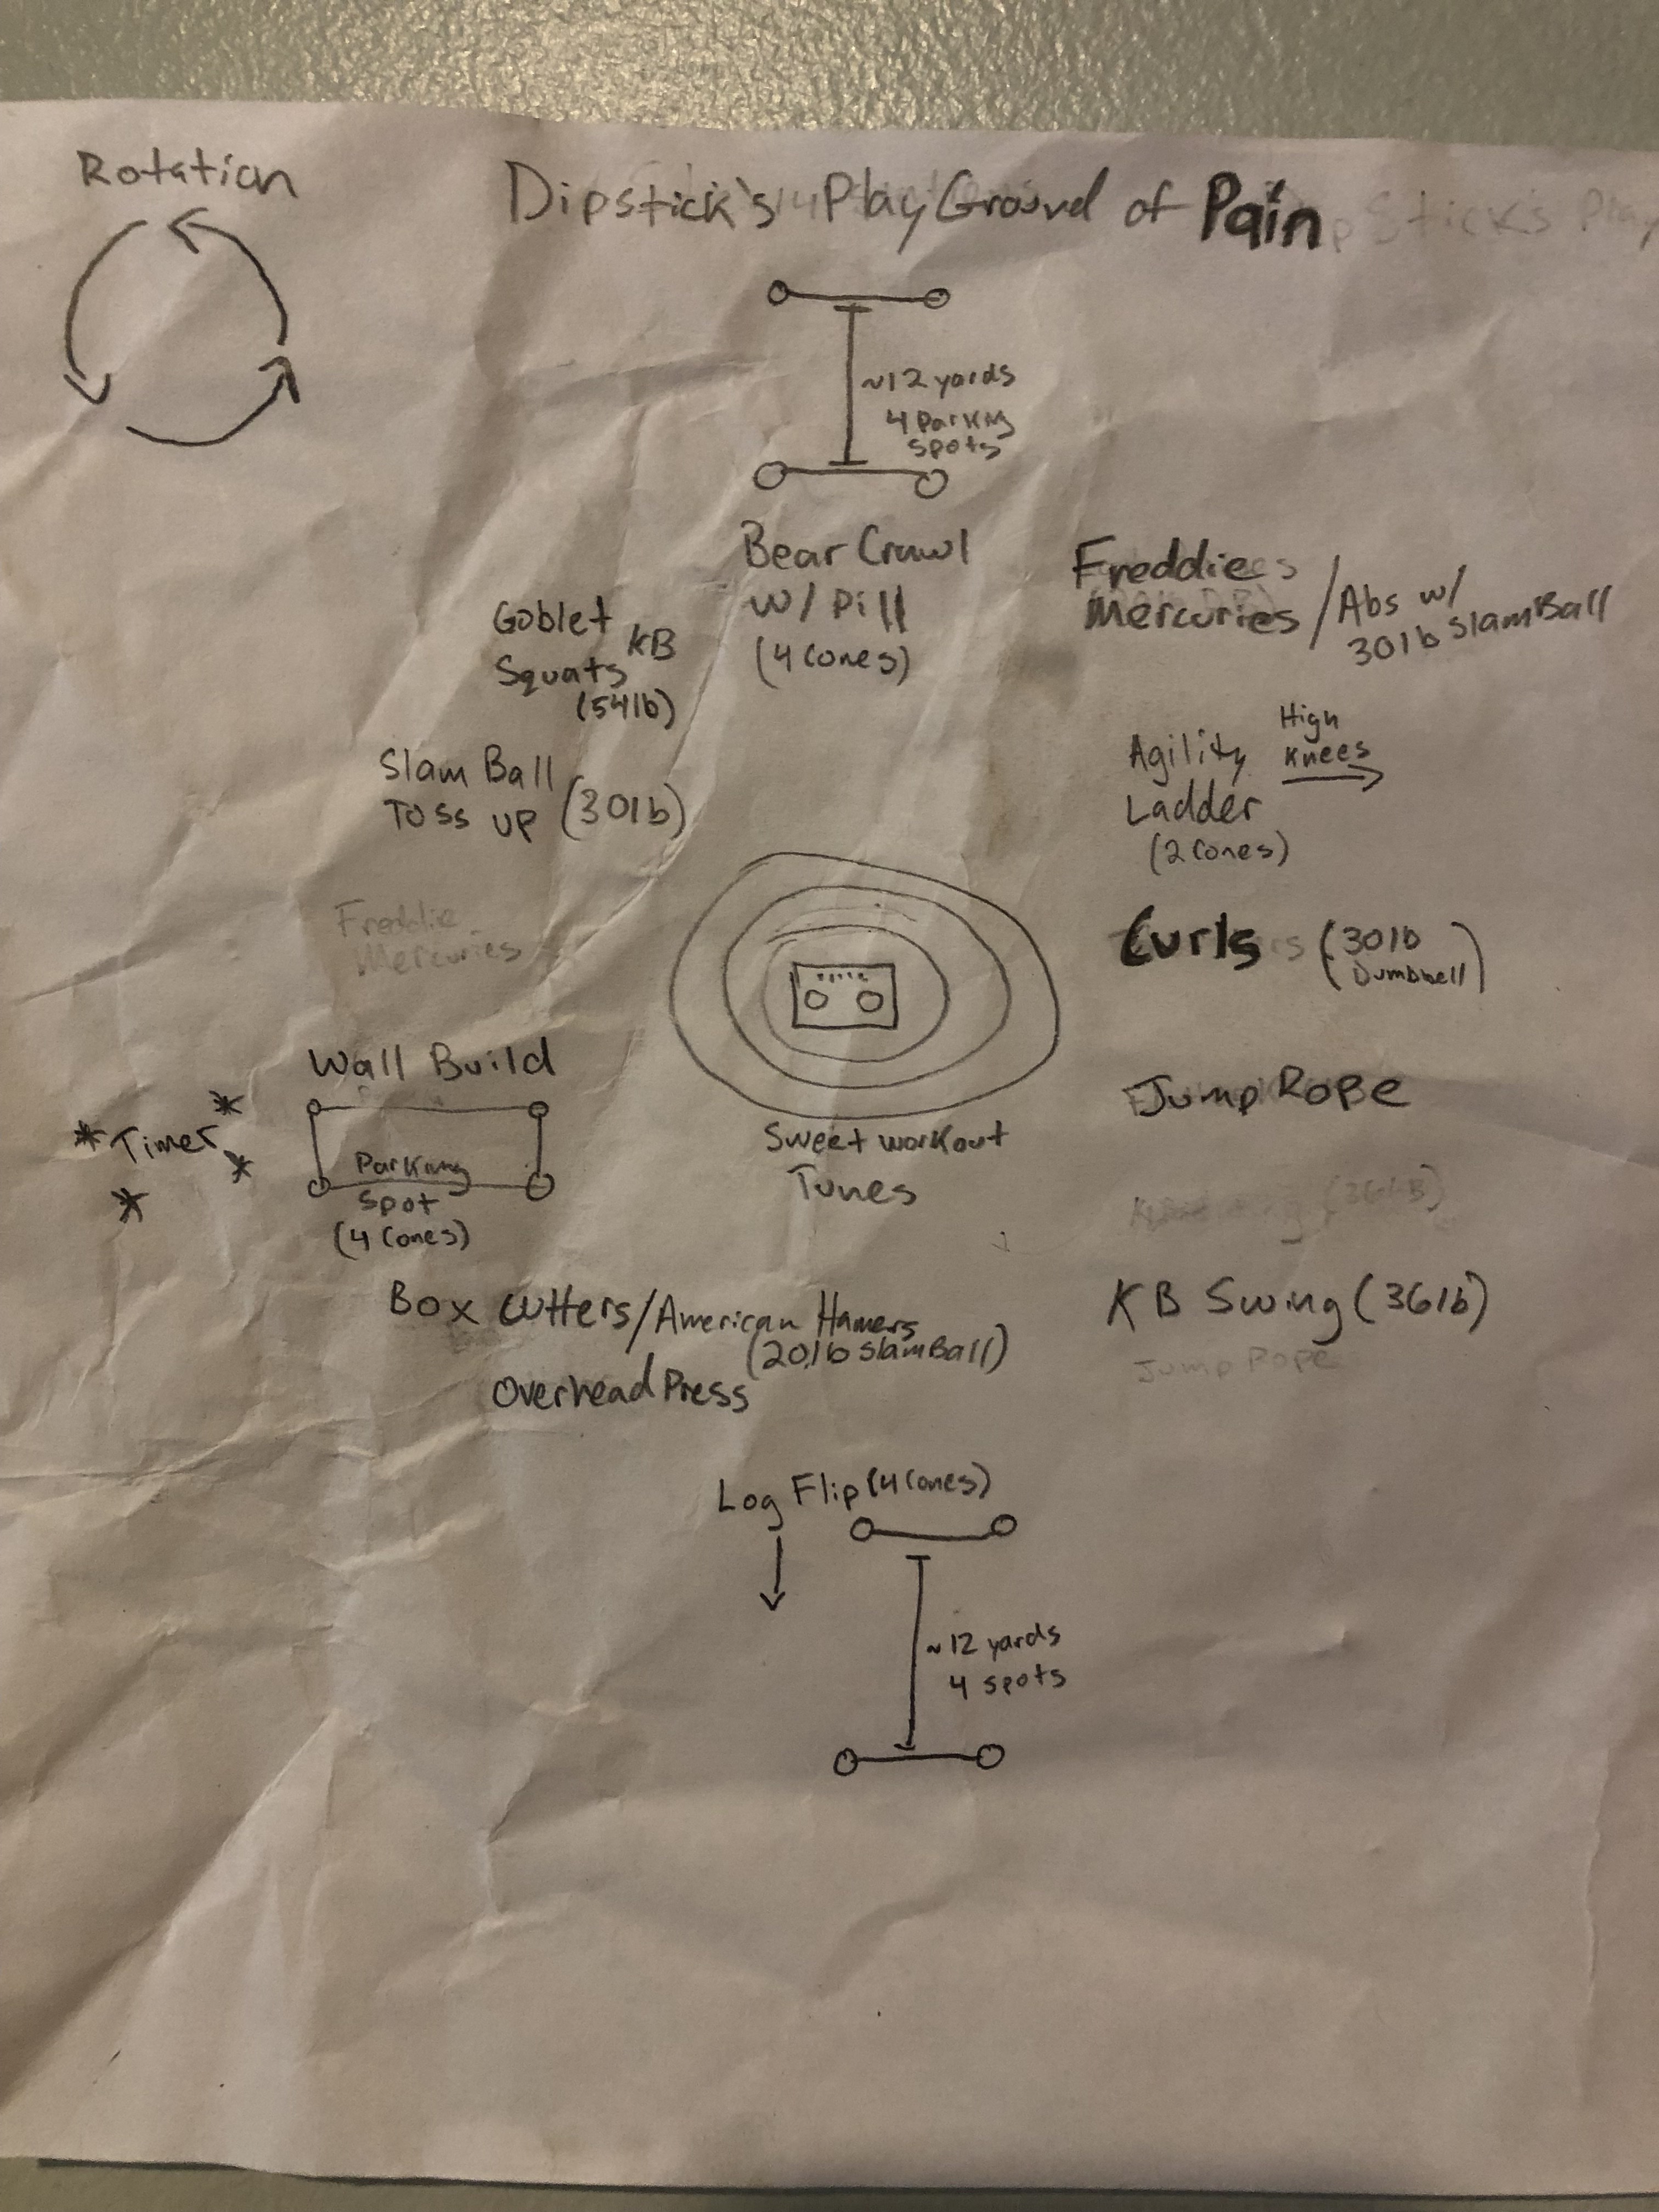 Rotation
Dipstick's Play Ground of Pain
~12 yards
4 Parking
spots
Bear Crawl
w/ Pill
(4 Cones)
Freddie
Mercuries / Abs w/
30lb SlamBall
Goblet
Squats KB
(54lb)
Slam Ball
Toss up (30lb)
Agility
Ladder
(2 Cones)
High
Knees
Freddie
Mercuries
Curls (30lb
Dumbbell)
Wall Build
*Timer*
*
*
Parking
Spot
(4 Cones)
Sweet workout
Tunes
Jump Rope
Box Cutters/American Hamers
(20lb SlamBall)
Overhead Press
KB Swing (36lb)
Jump Rope
Log Flip (4 Cones)
~12 yards
4 spots